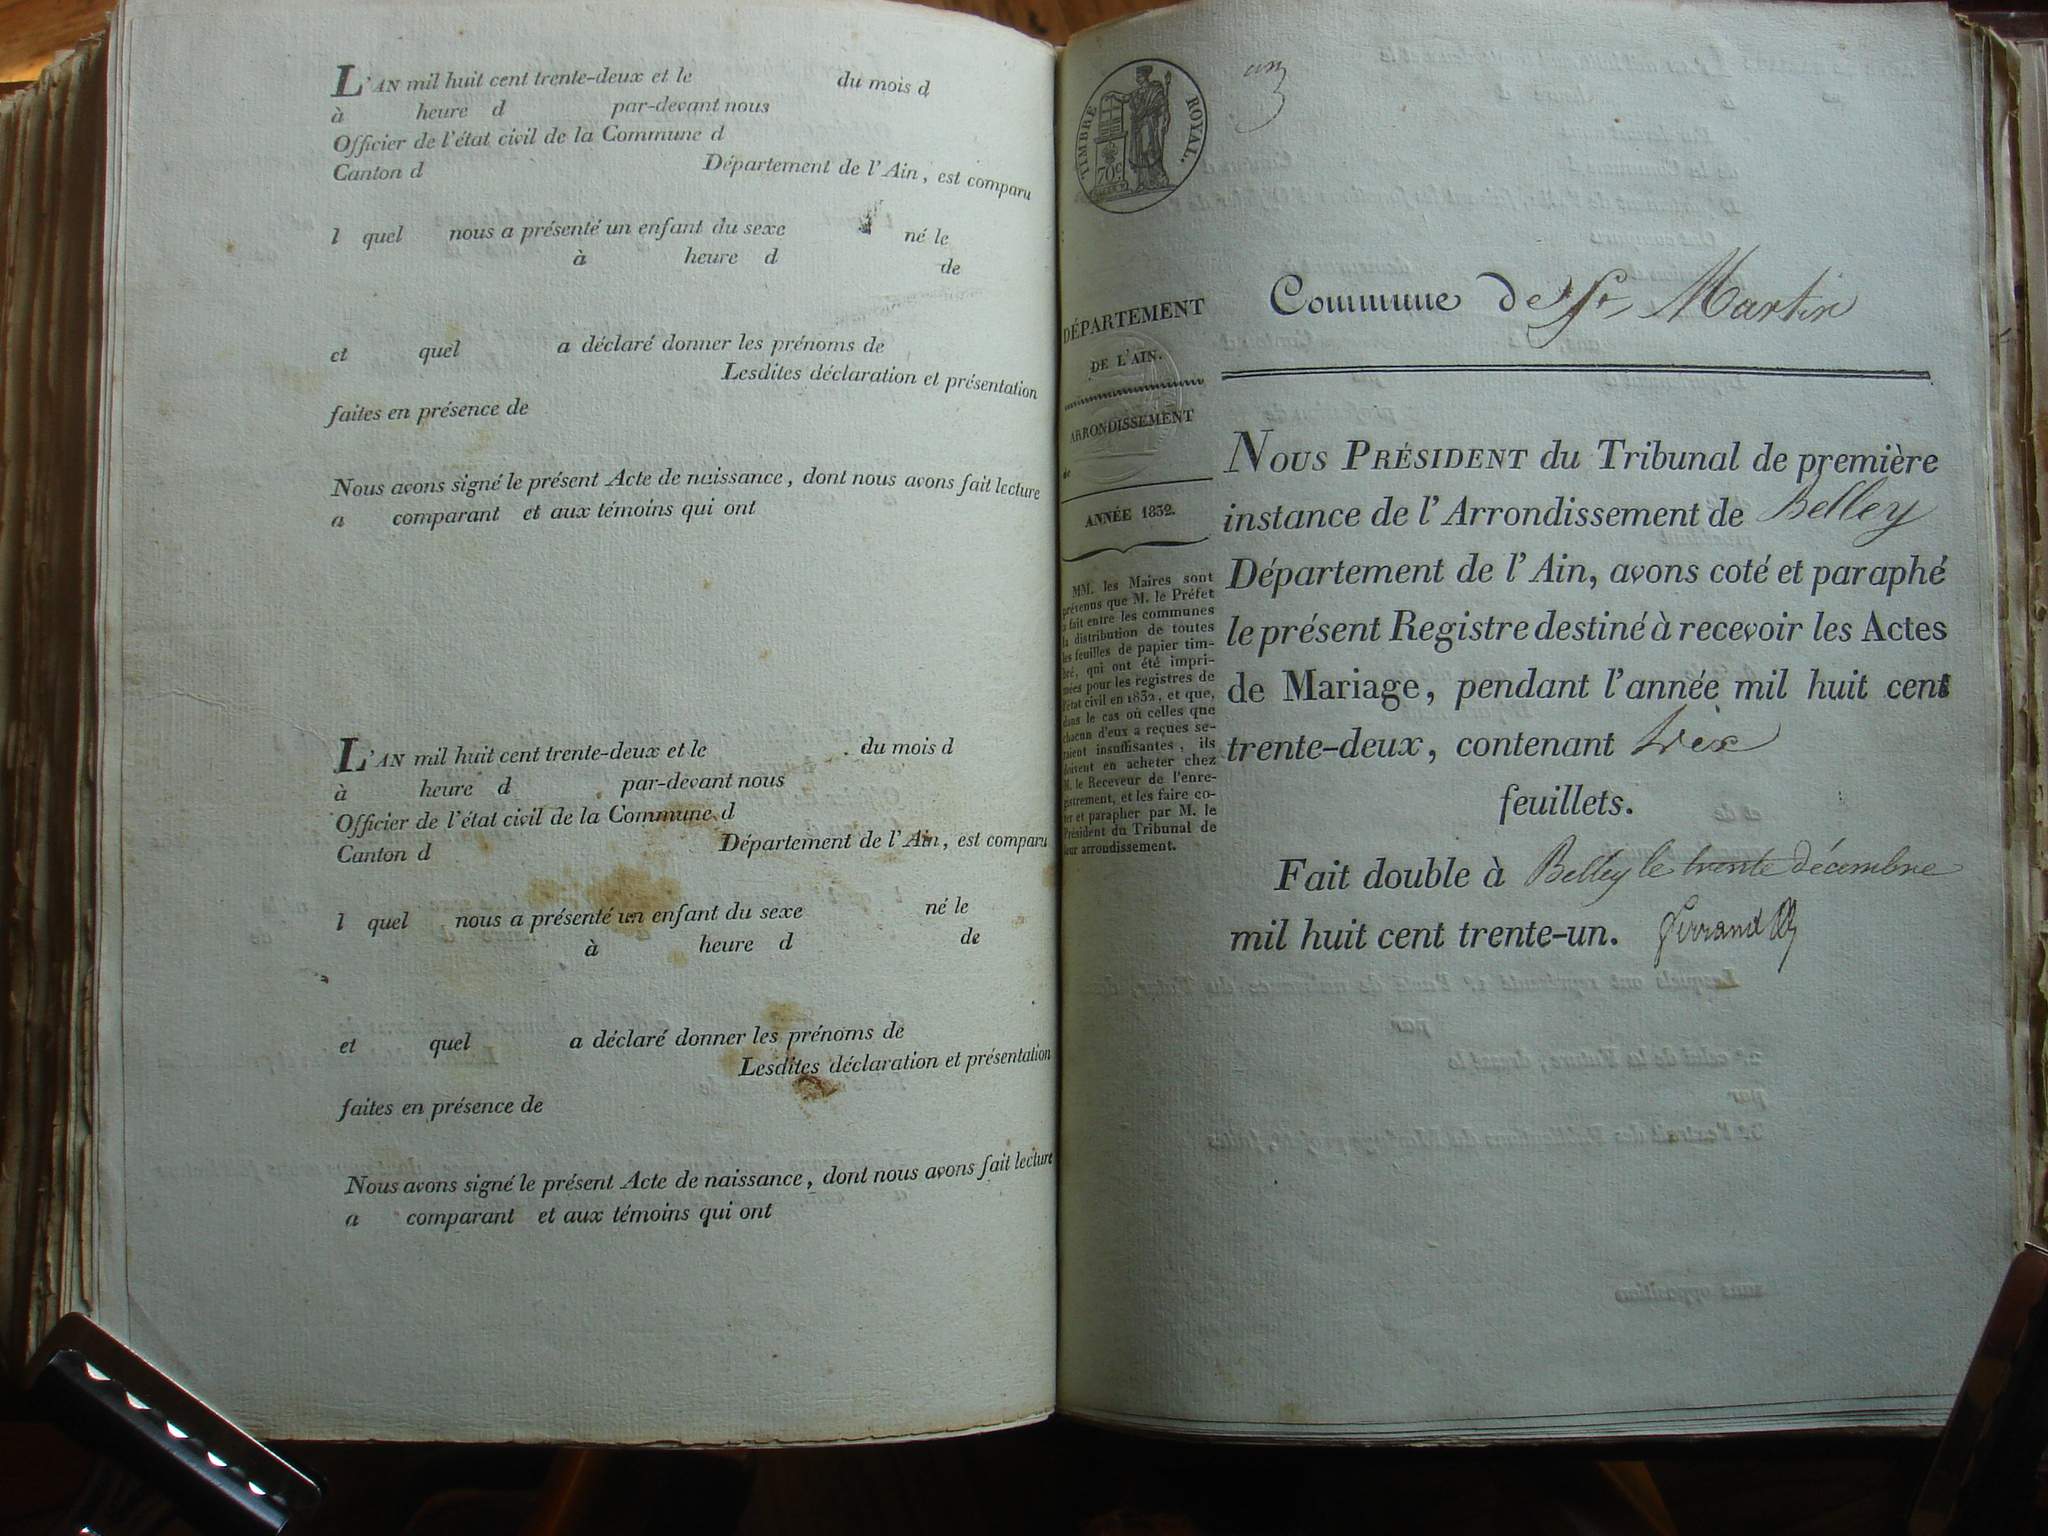 L'AN mil huit cent trente-deux et le du mois d
à heure d par-devant nous
Officier de l'état civil de la Commune d
Canton d Département de l'Ain, est comparu
l quel nous a présenté un enfant du sexe né le
à heure d de
et quel a déclaré donner les prénoms de
Lesdites déclaration et présentation
faites en présence de
Nous avons signé le présent Acte de naissance, dont nous avons fait lecture
a comparant et aux témoins qui ont
L'AN mil huit cent trente-deux et le du mois d
à heure d par-devant nous
Officier de l'état civil de la Commune d
Canton d Département de l'Ain, est comparu
l quel nous a présenté un enfant du sexe né le
à heure d de
et quel a déclaré donner les prénoms de
Lesdites déclaration et présentation
faites en présence de
Nous avons signé le présent Acte de naissance, dont nous avons fait lecture
a comparant et aux témoins qui ont
TIMBRE ROYAL.
70c
un
DÉPARTEMENT
DE L'AIN.
ARRONDISSEMENT
de
ANNÉE 1832.
MM. les Maires sont
prévenus que M. le Préfet
a fait entre les communes
la distribution de toutes
les feuilles de papier tim-
bré, qui ont été impri-
mées pour les registres de
l'état civil en 1832, et que,
dans le cas où celles que
chacun d'eux a reçues se-
raient insuffisantes, ils
doivent en acheter chez
M. le Receveur de l'enre-
gistrement, et les faire co-
ter et parapher par M. le
Président du Tribunal de
leur arrondissement.
Commune de St Martin
NOUS PRÉSIDENT du Tribunal de première
instance de l'Arrondissement de Belley
Département de l'Ain, avons coté et paraphé
le présent Registre destiné à recevoir les Actes
de Mariage, pendant l'année mil huit cent
trente-deux, contenant
feuillets.
Fait double à Belley le trente décembre
mil huit cent trente-un.